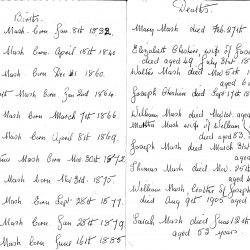 Births.
Mash. born. Jan 8th 1832.
Mash. born. April 18th 1860
Mash. born Dec 21 1860.
Mash born Jan 2nd 1864.
Mash born March 7th 1866.
Mash born April 8th 1869.
Mash born Nov 30th 1872.
Mash born Nov 3rd. 1875.
Mash born Sept 28th 1877.
Mash born Jan 28th 1879.
Mash born June 16th 1885
Deaths.
Mary Mash died Feb 27th
Elizabeth Cheshire wife of
died aged 49 July 31st
Walter Mash died Nov 5th
aged
Joseph Cheshire died Sept 17th
William Mash died
Martha Mash wife of William
died aged 53.
Joseph Mash died March 31st
aged
Thomas Mash died Nov. 25th
aged
William Mash brother of Joseph
died Aug 9th 1905 aged
Sarah Mash died June 12th
aged 52 years.